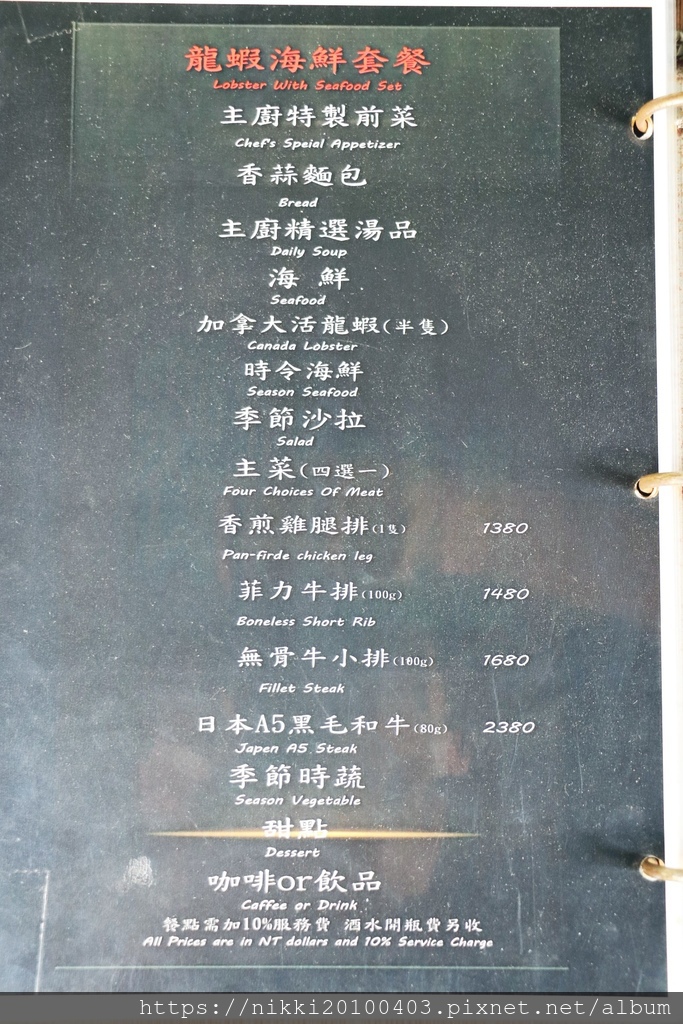 龍蝦海鮮套餐
Lobster With Seafood Set
主廚特製前菜
Chef's Speial Appetizer
香蒜麵包
Bread
主廚精選湯品
Daily Soup
海 鮮
Seafood
加拿大活龍蝦(半隻)
Canada Lobster
時令海鮮
Season Seafood
季節沙拉
Salad
主菜(四選一)
Four Choices Of Meat
香煎雞腿排(1隻) 1380
Pan-firde chicken leg
菲力牛排(100g) 1480
Boneless Short Rib
無骨牛小排(100g) 1680
Fillet Steak
日本A5黑毛和牛(80g) 2380
Japen A5 Steak
季節時蔬
Season Vegetable
甜點
Dessert
咖啡or飲品
Caffee or Drink
餐點需加10%服務費 酒水開瓶費另收
All Prices are in NT dollars and 10% Service Charge
https://nikki20100403.pixnet.net/album